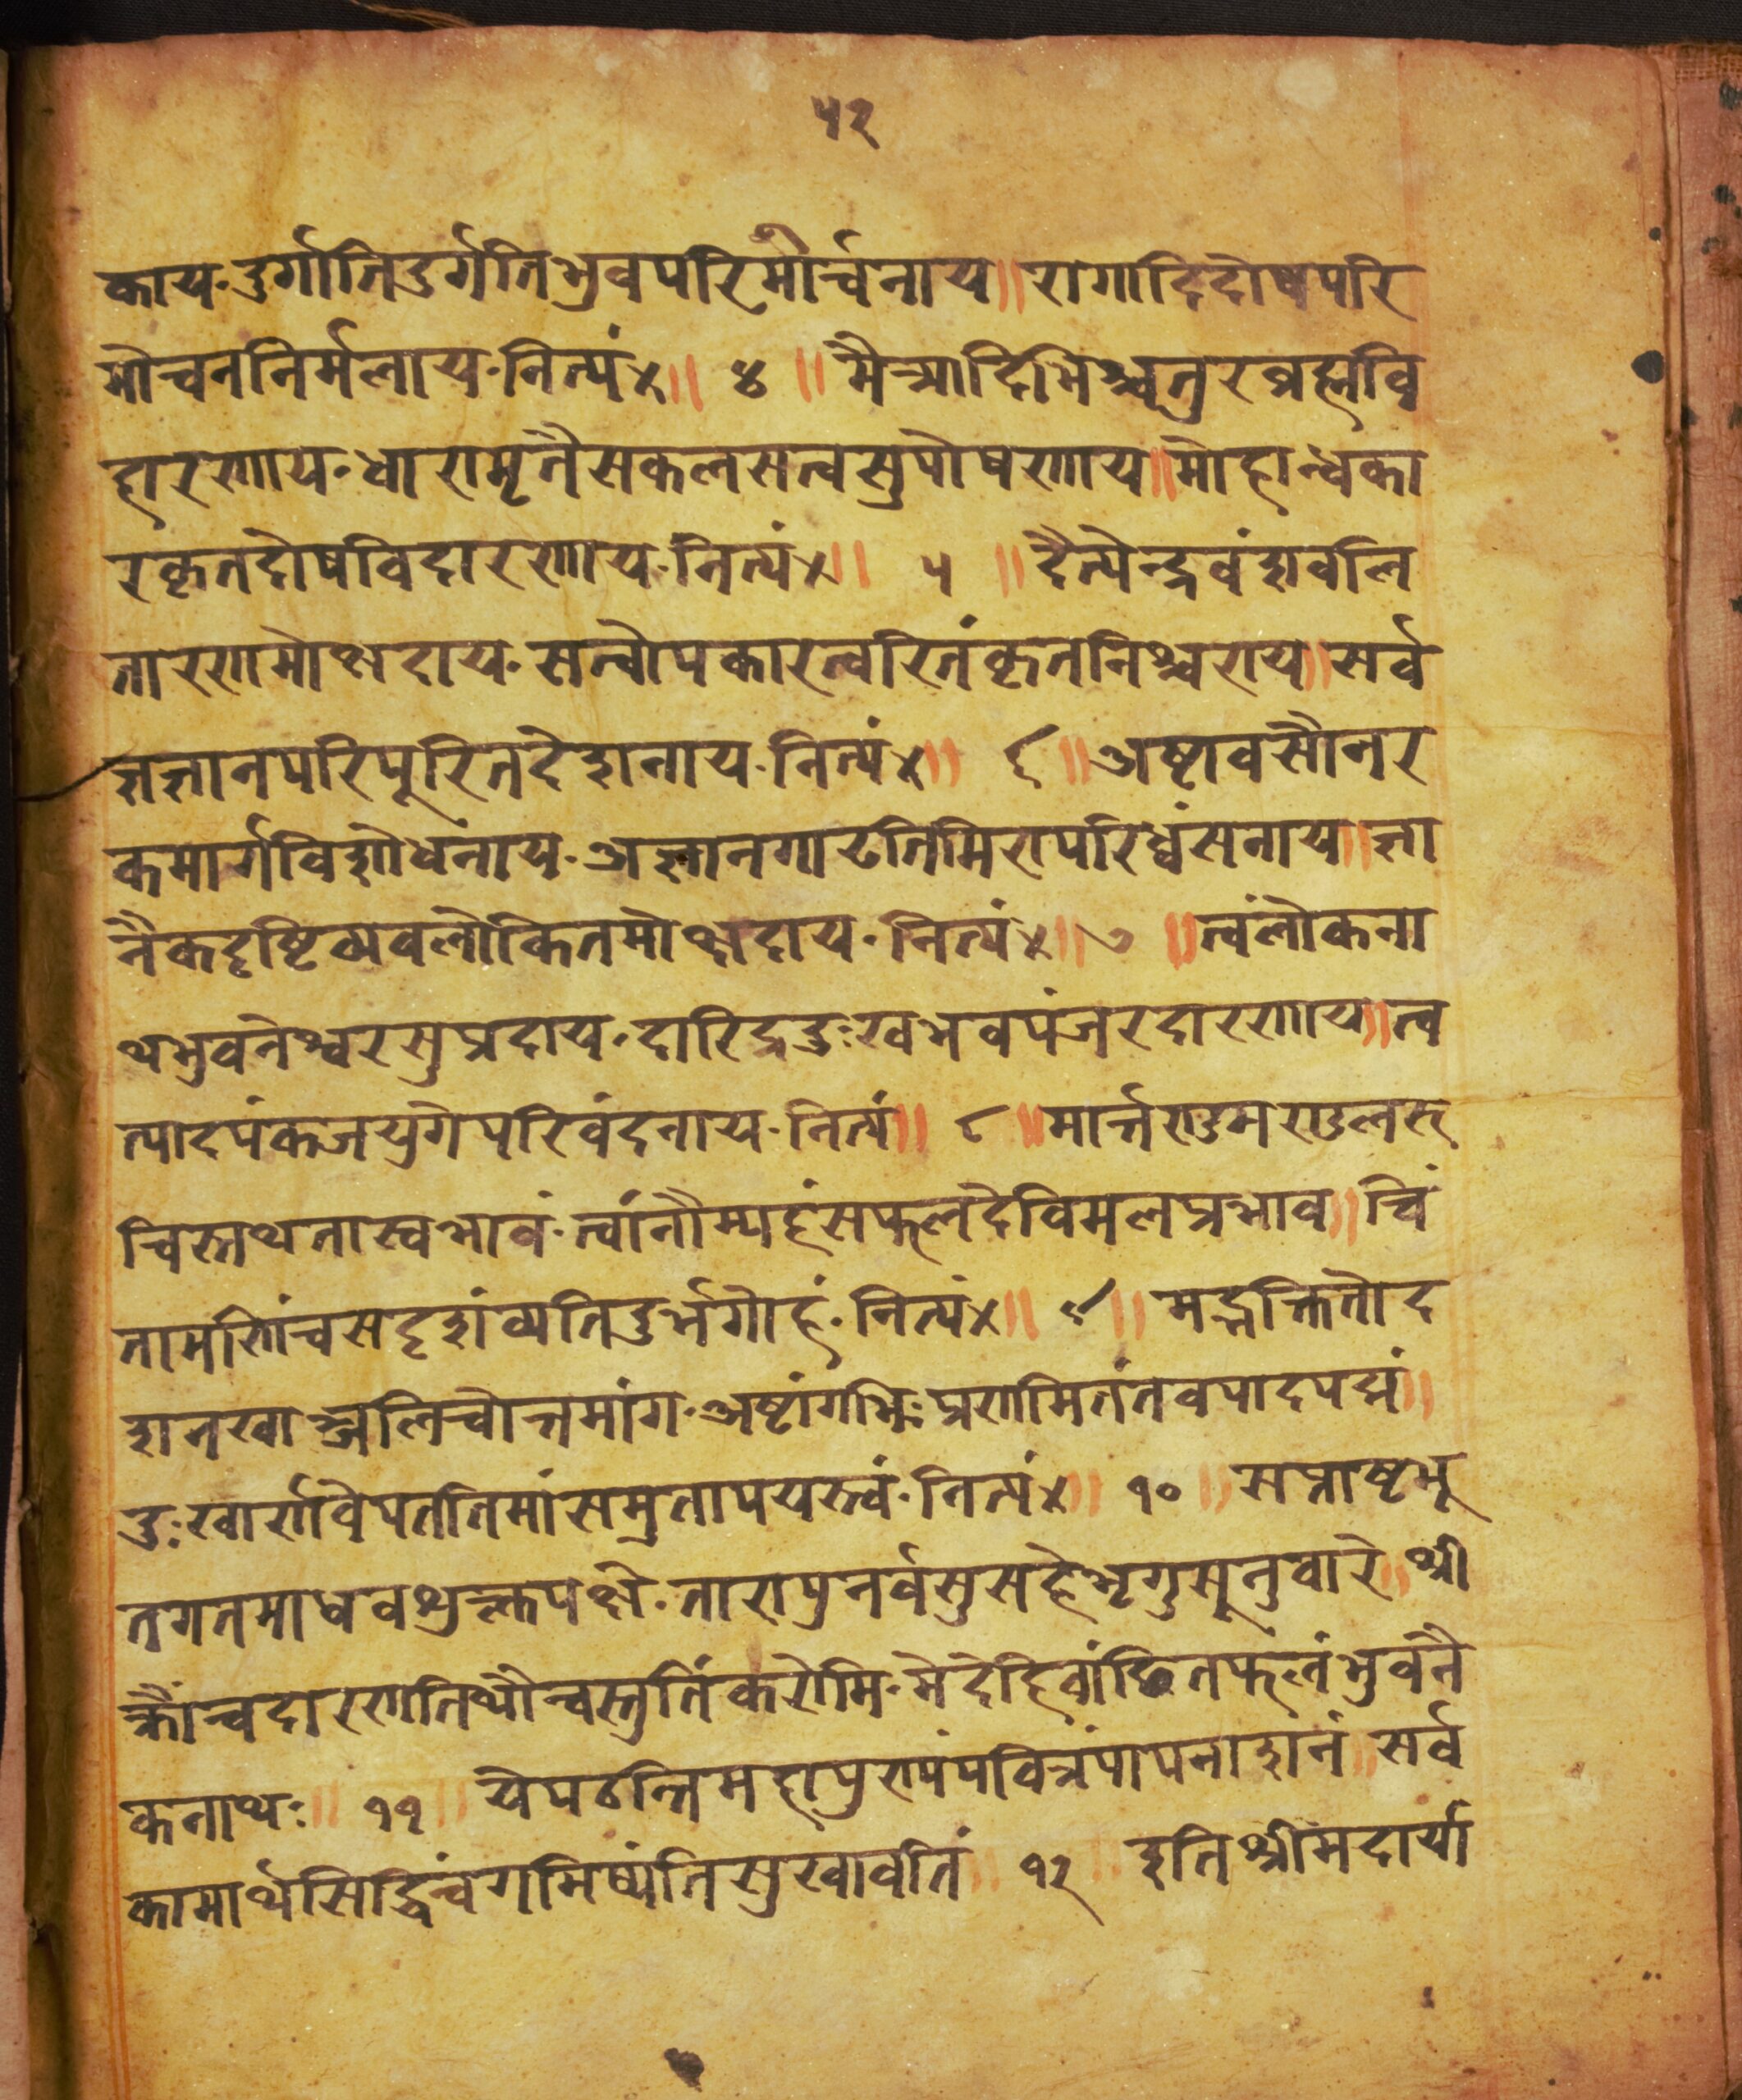 ५२
काय·दुर्गातिदुर्गतिभुवपरिमोर्च्चनाय॥रागादिदोषपरि
मोचननिर्मलाय·नित्यं४॥ ४ ॥मैत्र्यादिभिश्चतुरब्रह्मवि
हारणाय·धारामृतैसकलसत्वसुपोषणाय॥मोहान्धका
रकृतदोषविदारणाय·नित्यं४॥ ५ ॥दैत्येन्द्रवंशवलि
तारणमोक्षदाय·सत्वोपकारत्वरितंकृतनिश्चराय॥सर्व
ज्ञज्ञानपरिपूरितदेशनाय·नित्यं४॥ ६ ॥अष्टावसौनर
कमार्गविशोधनाय·अज्ञानगाढतिमिरापरिध्वंसनाय॥ज्ञा
नैकदृष्टिव्यवलोकितमोक्षदाय·नित्यं४॥ ७ ॥त्वंलोकना
थभुवनेश्वरसुप्रदाय·दारिद्रदुःखभवपंजरदारणाय॥त्व
त्पादपंकजयुगेपरिवंदनाय·नित्यं॥ ८ ॥मार्त्तण्डमण्डलरु
चिस्तथतास्वभावं·त्वांनौम्यहंसफलदेविमलप्रभाव॥चिं
तामणिंचसदृशंव्यतिदुर्भगोहं·नित्यं४॥ ९ ॥मद्भक्तितोद
शनखाञ्जलिचोत्तमांग·अष्टांगभिःप्रणमितंतवपादपद्मं॥
दुःखार्णवेपततिमांसमुतापयस्त्वं·नित्यं४॥ १० ॥सप्ताष्टभू
तगतमाधवशुक्लपक्षे·तारापुनर्वसुसहेभृगुसूनुवारे॥श्री
क्रौंचदारणतिथौचस्तुतिंकरोमि·मेदेहिवांछितफलंभुवनै
कनाथः॥ ११ ॥येपठन्तिमहापुण्यंपवित्रंपापनाशनं॥सर्व
कामार्थसिद्धिंचगमिष्यंतिसुखावतिं॥ १२ ॥इतिश्रीमदार्या